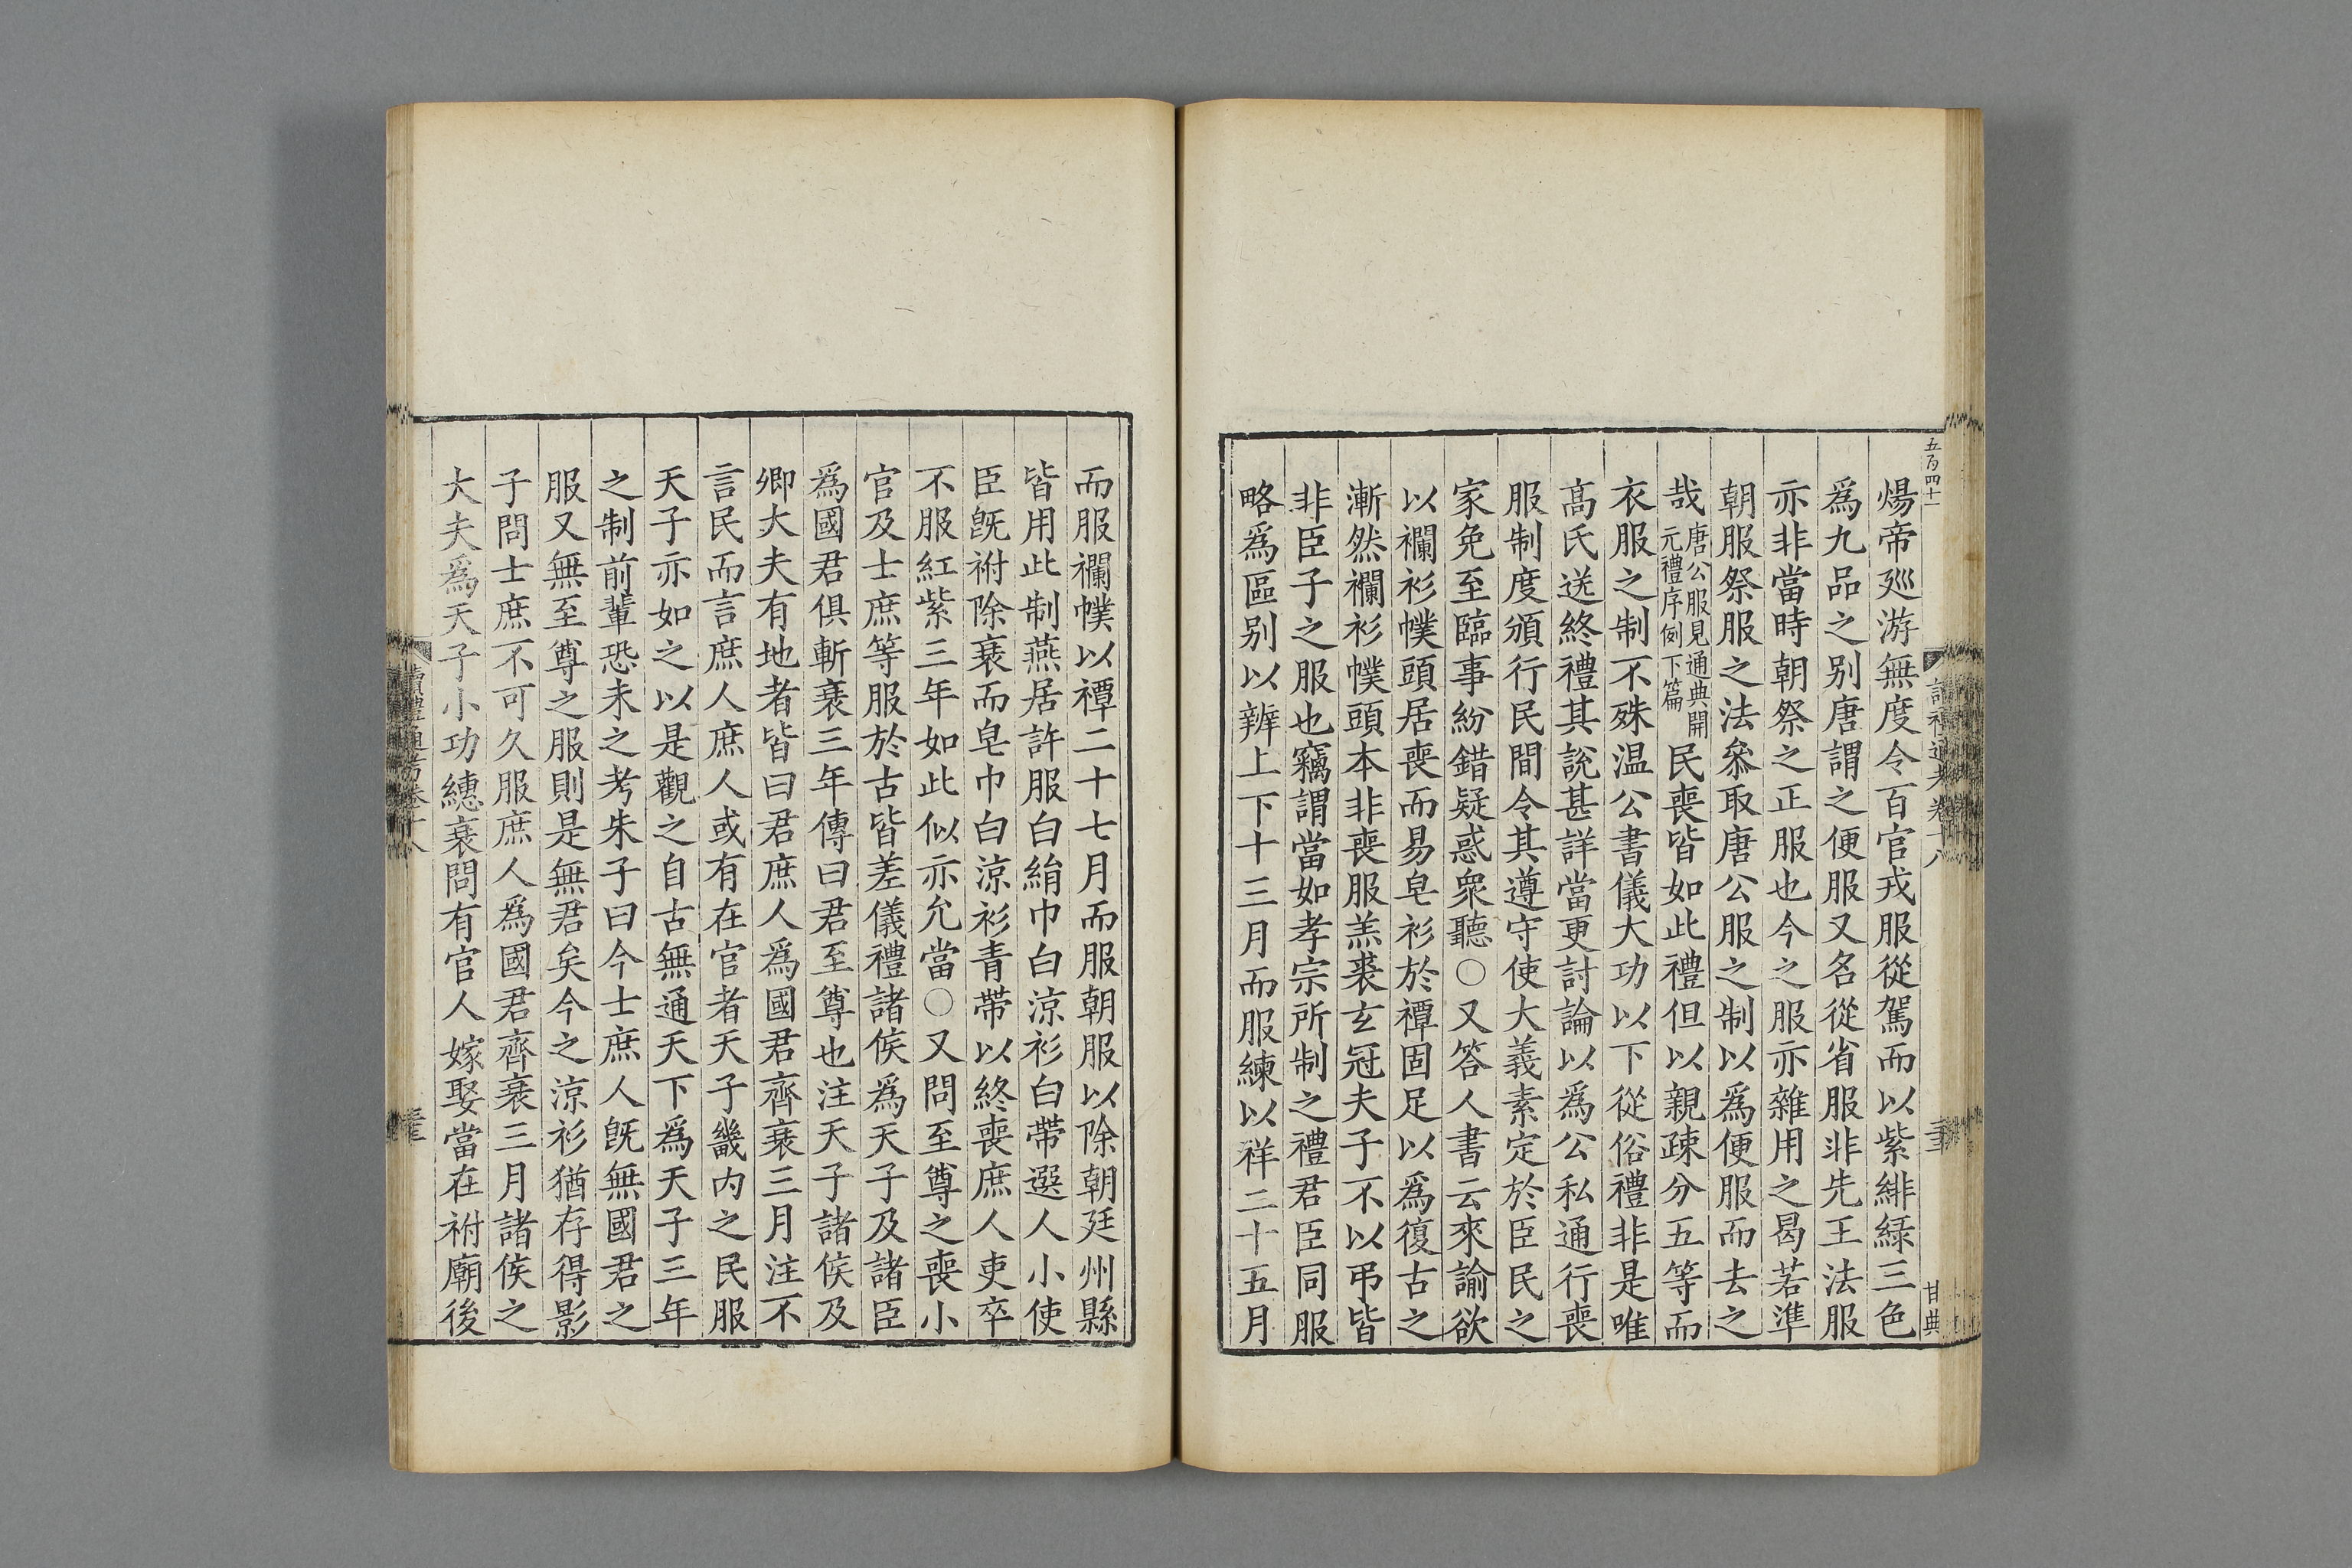 五百四十一
煬帝廵游無度令百官戎服從駕而以紫緋緑三色
爲九品之别唐謂之便服又名從省服非先王法服
亦非當時朝祭之正服也今之服亦雜用之曷若準
朝服祭服之法叅取唐公服之制以爲便服而去之
哉唐公服見通典開
元禮序例下篇民喪皆如此禮但以親疎分五等而
衣服之制不殊温公書儀大功以下從俗禮非是唯
髙氏送終禮其說甚詳當更討論以爲公私通行喪
服制度頒行民間令其遵守使大義素定於臣民之
家免至臨事紛錯疑惑衆聽○又答人書云來諭欲
以襴衫幞頭居喪而易皂衫於禫固足以爲復古之
漸然襴衫幞頭本非喪服羔裘玄冠夫子不以弔皆
非臣子之服也竊謂當如孝宗所制之禮君臣同服
略爲區别以辨上下十三月而服練以祥二十五月
甘典
而服襴幞以禫二十七月而服朝服以除朝廷州縣
皆用此制燕居許服白絹巾白涼衫白帶選人小使
臣旣祔除衰而皂巾白涼衫青帶以終喪庶人吏卒
不服紅紫三年如此似亦允當○又問至尊之喪小
官及士庶等服於古皆差儀禮諸侯爲天子及諸臣
爲國君俱斬衰三年傳曰君至尊也注天子諸侯及
卿大夫有地者皆曰君庶人爲國君齊衰三月注不
言民而言庶人庶人或有在官者天子畿内之民服
天子亦如之以是觀之自古無通天下爲天子三年
之制前輩恐未之考朱子曰今士庶人旣無國君之
服又無至尊之服則是無君矣今之涼衫猶存得影
子問士庶不可久服庶人爲國君齊衰三月諸侯之
大夫爲天子小功繐衰問有官人嫁娶當在祔廟後